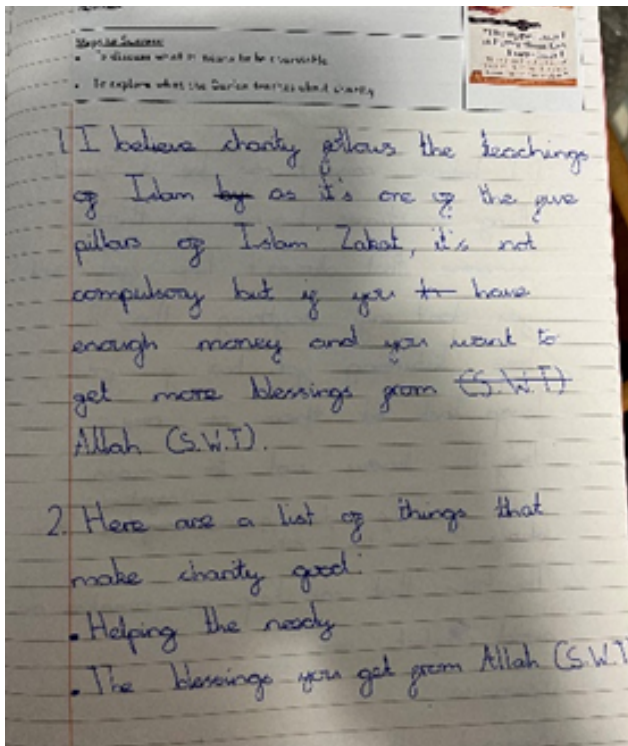 Steps to Success:
• To discuss what it means to be charitable
• To explore what the Quran teaches about charity
1. I believe charity follows the teachings
of Islam by as it's one of the five
pillars of Islam Zakat, it's not
compulsory but if you have
enough money and you want to
get more blessings from (S.W.T)
Allah (S.W.T).
2. Here are a list of things that
make charity good:
• Helping the needy
• The blessings you get from Allah (S.W.T)